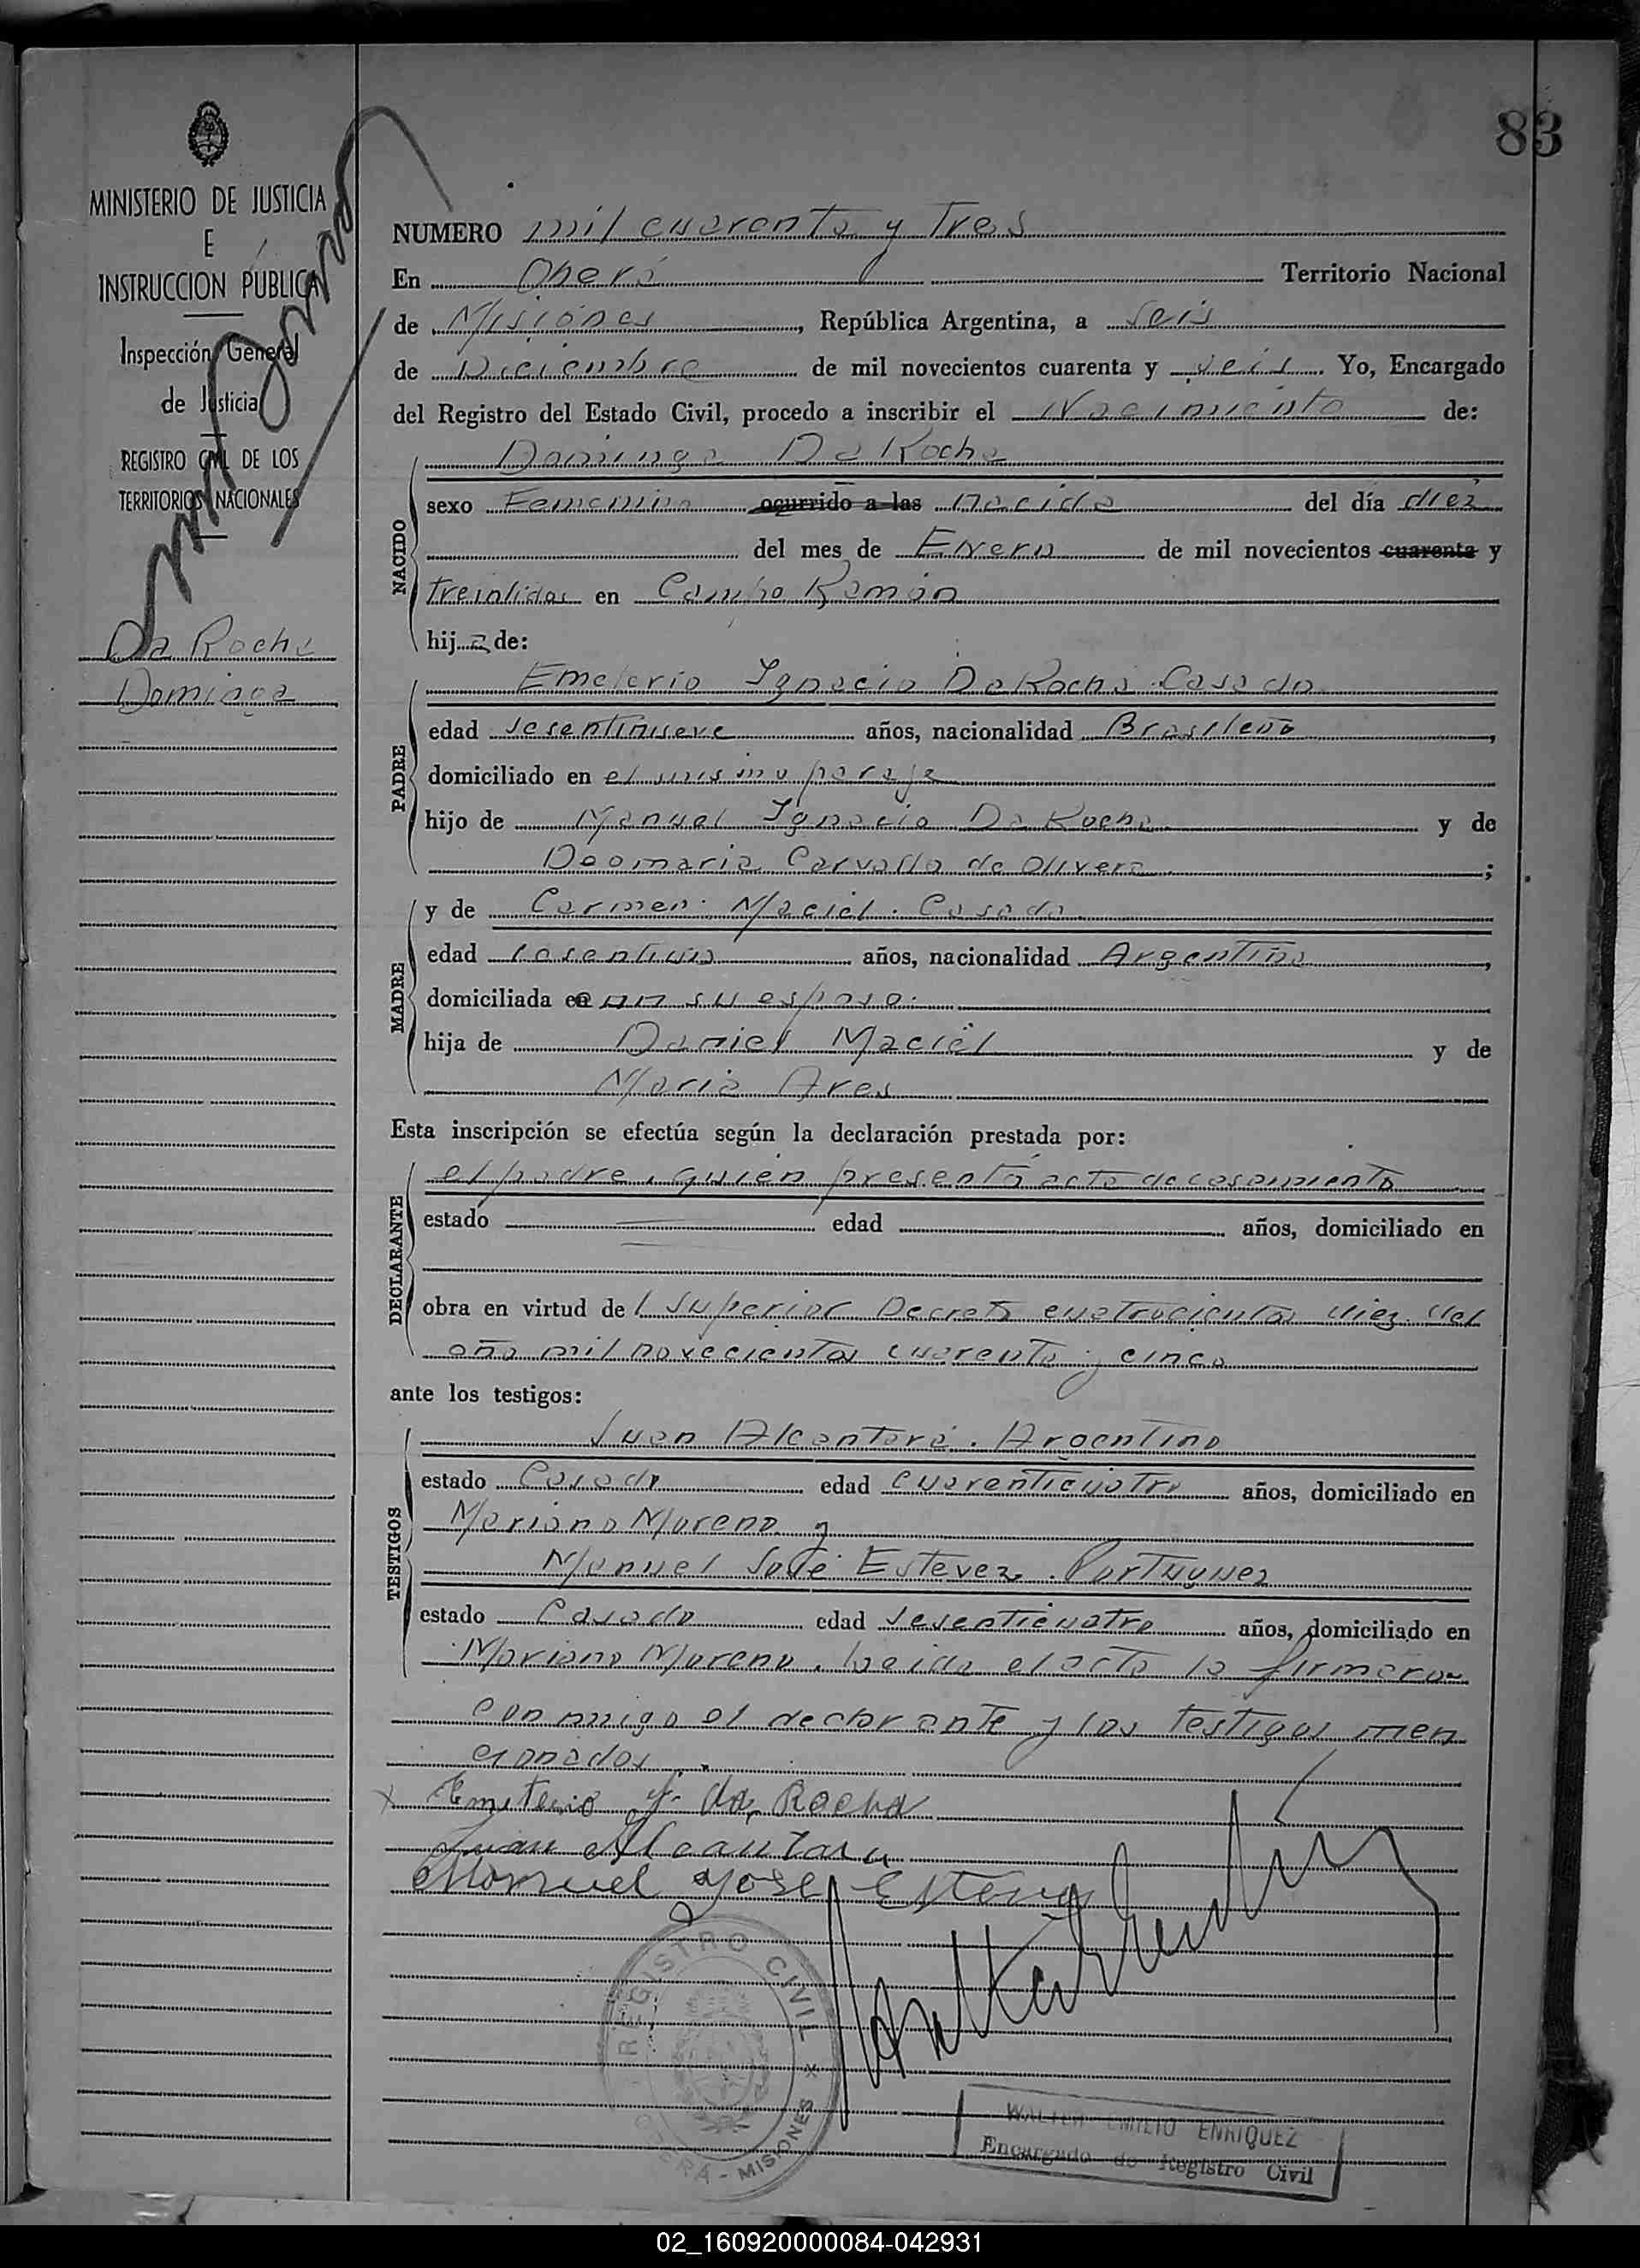 83
MINISTERIO DE JUSTICIA
E
INSTRUCCION PUBLICA
Inspección General
de Justicia
REGISTRO CIVIL DE LOS
TERRITORIOS NACIONALES
Da Rocha
Dominga
NUMERO mil cuarenta y Tres
En Oberá Territorio Nacional
de Misiones, República Argentina, a seis
de Diciembre de mil novecientos cuarenta y seis. Yo, Encargado
del Registro del Estado Civil, procedo a inscribir el Nacimiento de:
Dominga Da Rocha
NACIDO
sexo Femenino ocurrido a las nacida del día diez
del mes de Enero de mil novecientos cuarenta y
treintidos en Campo Ramón
hija de:
PADRE
Emeterio Ignacio Da Rocha. Casado
edad sesentinueve años, nacionalidad Brasileño,
domiciliado en el mismo paraje
hijo de Manuel Ignacio Da Rocha y de
Deomaria Carvallo de Olivera;
MADRE
y de Carmen Maciel. Casada
edad años, nacionalidad Argentina,
domiciliada con su esposo.
hija de Daniel Maciel y de
Maria Ares
Esta inscripción se efectúa según la declaración prestada por:
DECLARANTE
el padre, quien presenta acta de casamiento
estado edad años, domiciliado en
obra en virtud del Superior Decreto cuatrocientos diez del
año mil novecientos cuarenta y cinco
ante los testigos:
TESTIGOS
Juan Alcantara. Argentino
estado Casado edad cuarenticuatro años, domiciliado en
Mariano Moreno y
Manuel José Estevez. Portuguez
estado Casado edad sesenticuatro años, domiciliado en
Mariano Moreno. Leida el acta la firmaron
conmigo el declarante y los testigos men
cionados.
x Emeterio Y. da Rocha
Juan Alcantara
Manuel Jose Estevez
REGISTRO CIVIL
OBERA - MISIONES
WALTER EMILIO ENRIQUEZ
Encargado de Registro Civil
02_160920000084-042931